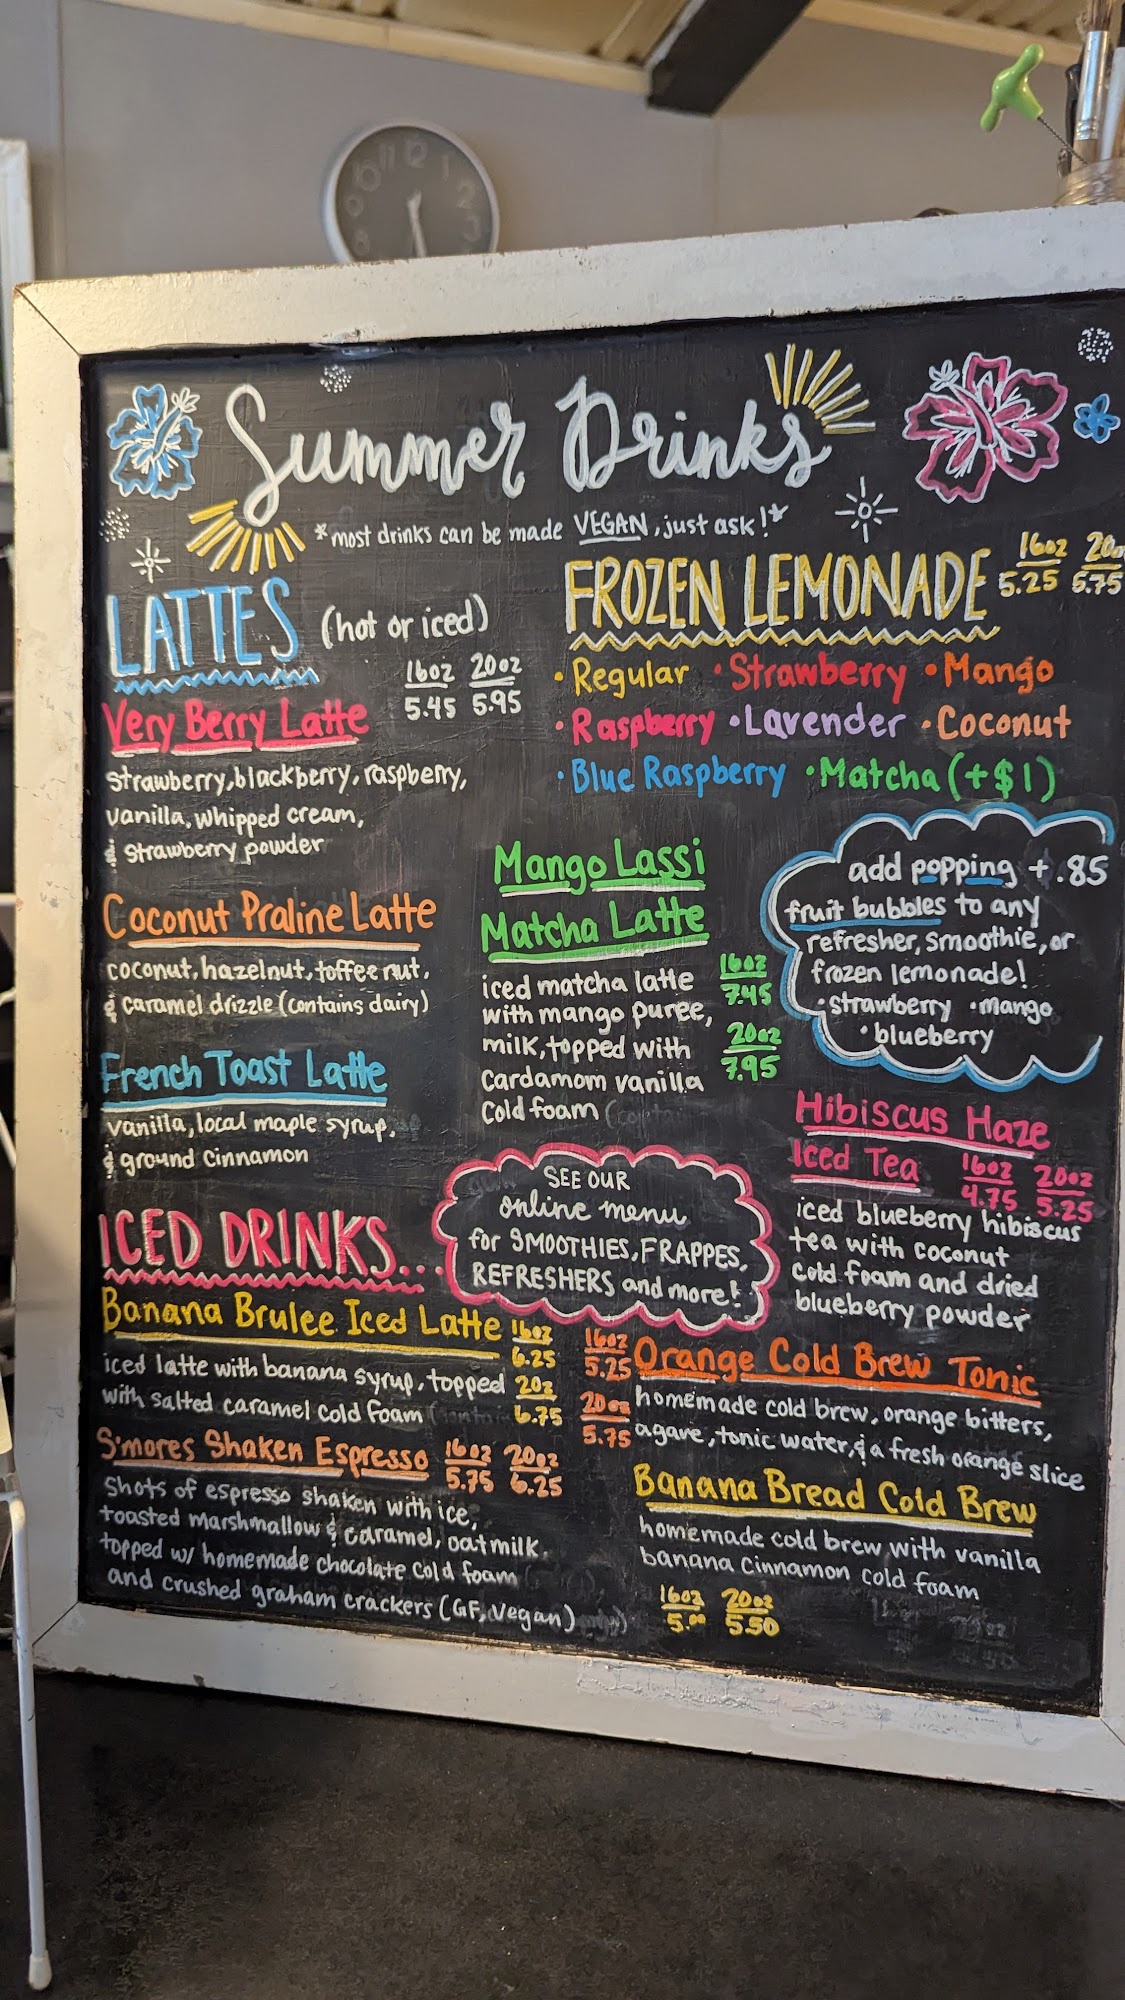 Summer Drinks
*most drinks can be made VEGAN, just ask!*
LATTES (hot or iced)
16oz 20oz
5.45 5.95
Very Berry Latte
strawberry, blackberry, raspberry,
vanilla, whipped cream,
& strawberry powder
Coconut Praline Latte
coconut, hazelnut, toffee nut,
& caramel drizzle (contains dairy)
French Toast Latte
vanilla, local maple syrup,
& ground cinnamon
FROZEN LEMONADE
16oz
5.25 5.75
• Regular • Strawberry • Mango
• Raspberry • Lavender • Coconut
• Blue Raspberry • Matcha (+$1)
Mango Lassi
Matcha Latte
iced matcha latte
with mango puree,
milk, topped with
cardamom vanilla
cold foam
16oz
7.45
20oz
7.95
add popping +.85
fruit bubbles to any
refresher, smoothie, or
frozen lemonade!
• strawberry • mango
• blueberry
Hibiscus Haze
Iced Tea
16oz 20oz
4.75 5.25
iced blueberry hibiscus
tea with coconut
cold foam and dried
blueberry powder
SEE OUR
online menu
for SMOOTHIES, FRAPPES,
REFRESHERS and more!
ICED DRINKS...
Banana Brulee Iced Latte
16oz
6.25
20z
6.75
iced latte with banana syrup, topped
with salted caramel cold foam
S'mores Shaken Espresso
16oz 20oz
5.75 6.25
shots of espresso shaken with ice,
toasted marshmallow & caramel, oatmilk.
topped w/ homemade chocolate cold foam
and crushed graham crackers (GF, Vegan)
16oz
5.25
20oz
5.75
Orange Cold Brew Tonic
homemade cold brew, orange bitters,
agave, tonic water, & a fresh orange slice
Banana Bread Cold Brew
homemade cold brew with vanilla
banana cinnamon cold foam
16oz 20oz
5.00 5.50